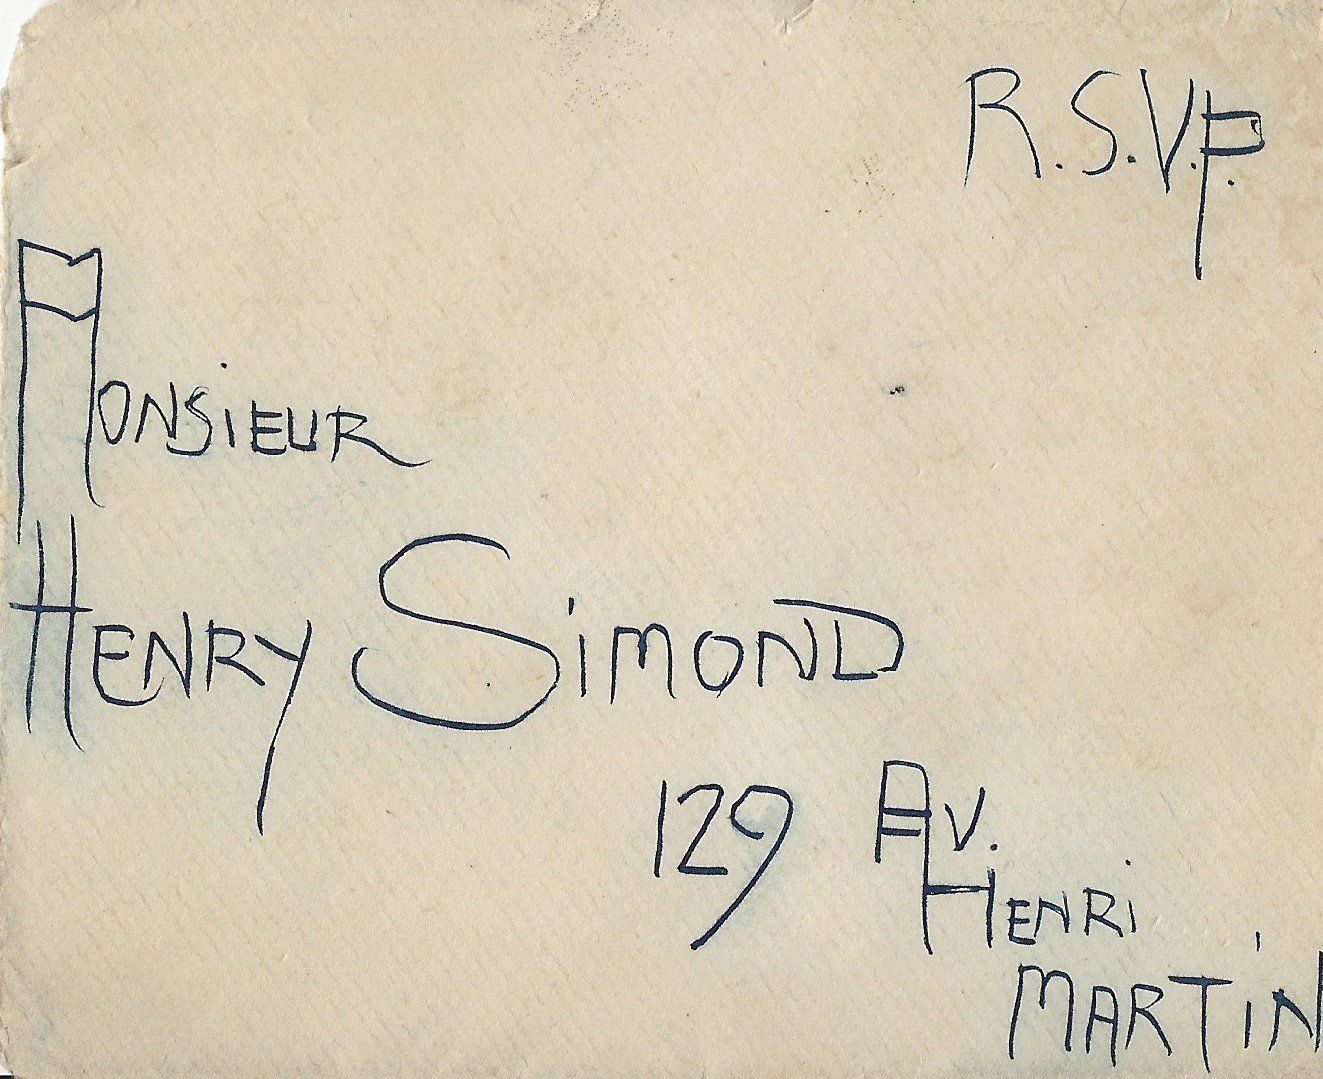 R.S.V.P.
MONSiEUR
HENRY SiMOND
129 AV.
HENRi
MARTiN